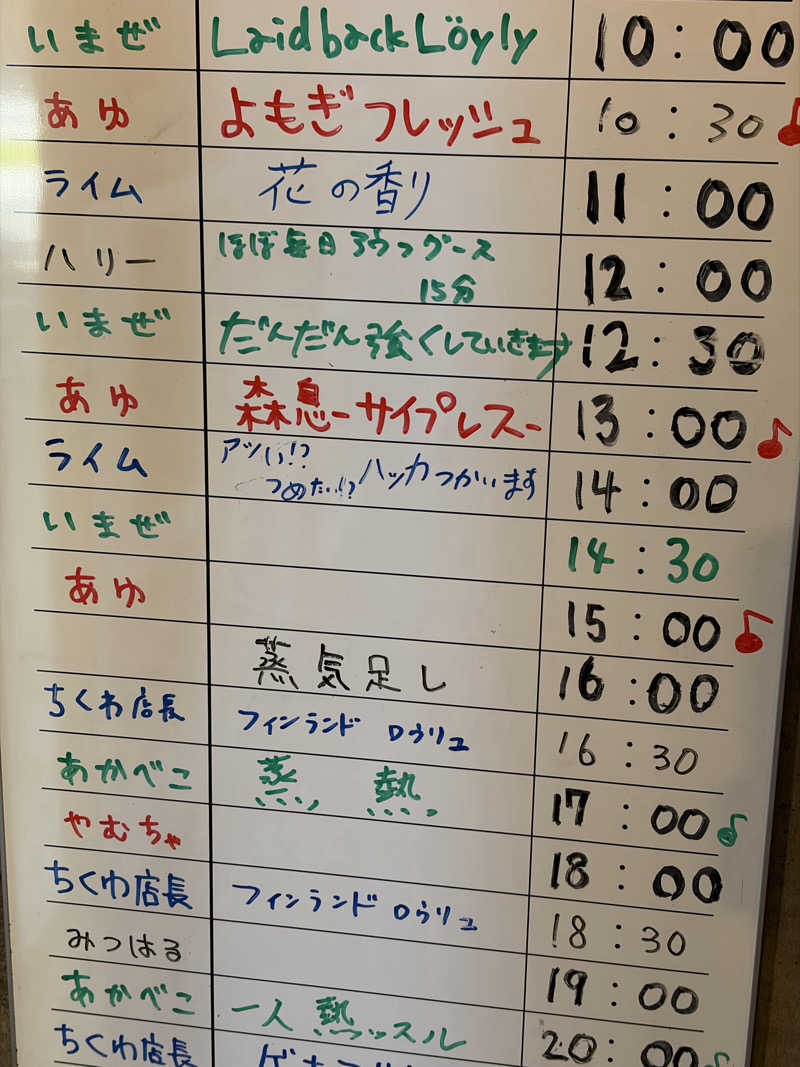 いまぜ Laid back Löyly 10:00
あゆ よもぎフレッシュ 10:30 ♪
ライム 花の香り 11:00
ハリー ほぼ毎日アウフグース
15分 12:00
いまぜ だんだん強くしていきます 12:30
あゆ 森息ーサイプレスー 13:00 ♪
ライム アツい!?
つめたい!? ハッカつかいます 14:00
いまぜ 14:30
あゆ 15:00 ♪
蒸気足し 16:00
ちくわ店長 フィンランド ロウリュ 16:30
あかべこ 蒸 熱 17:00 ♪
やむちゃ 18:00
ちくわ店長 フィンランド ロウリュ 18:30
みつはる 19:00
あかべこ 一人 熱ッスル 20:00
ちくわ店長